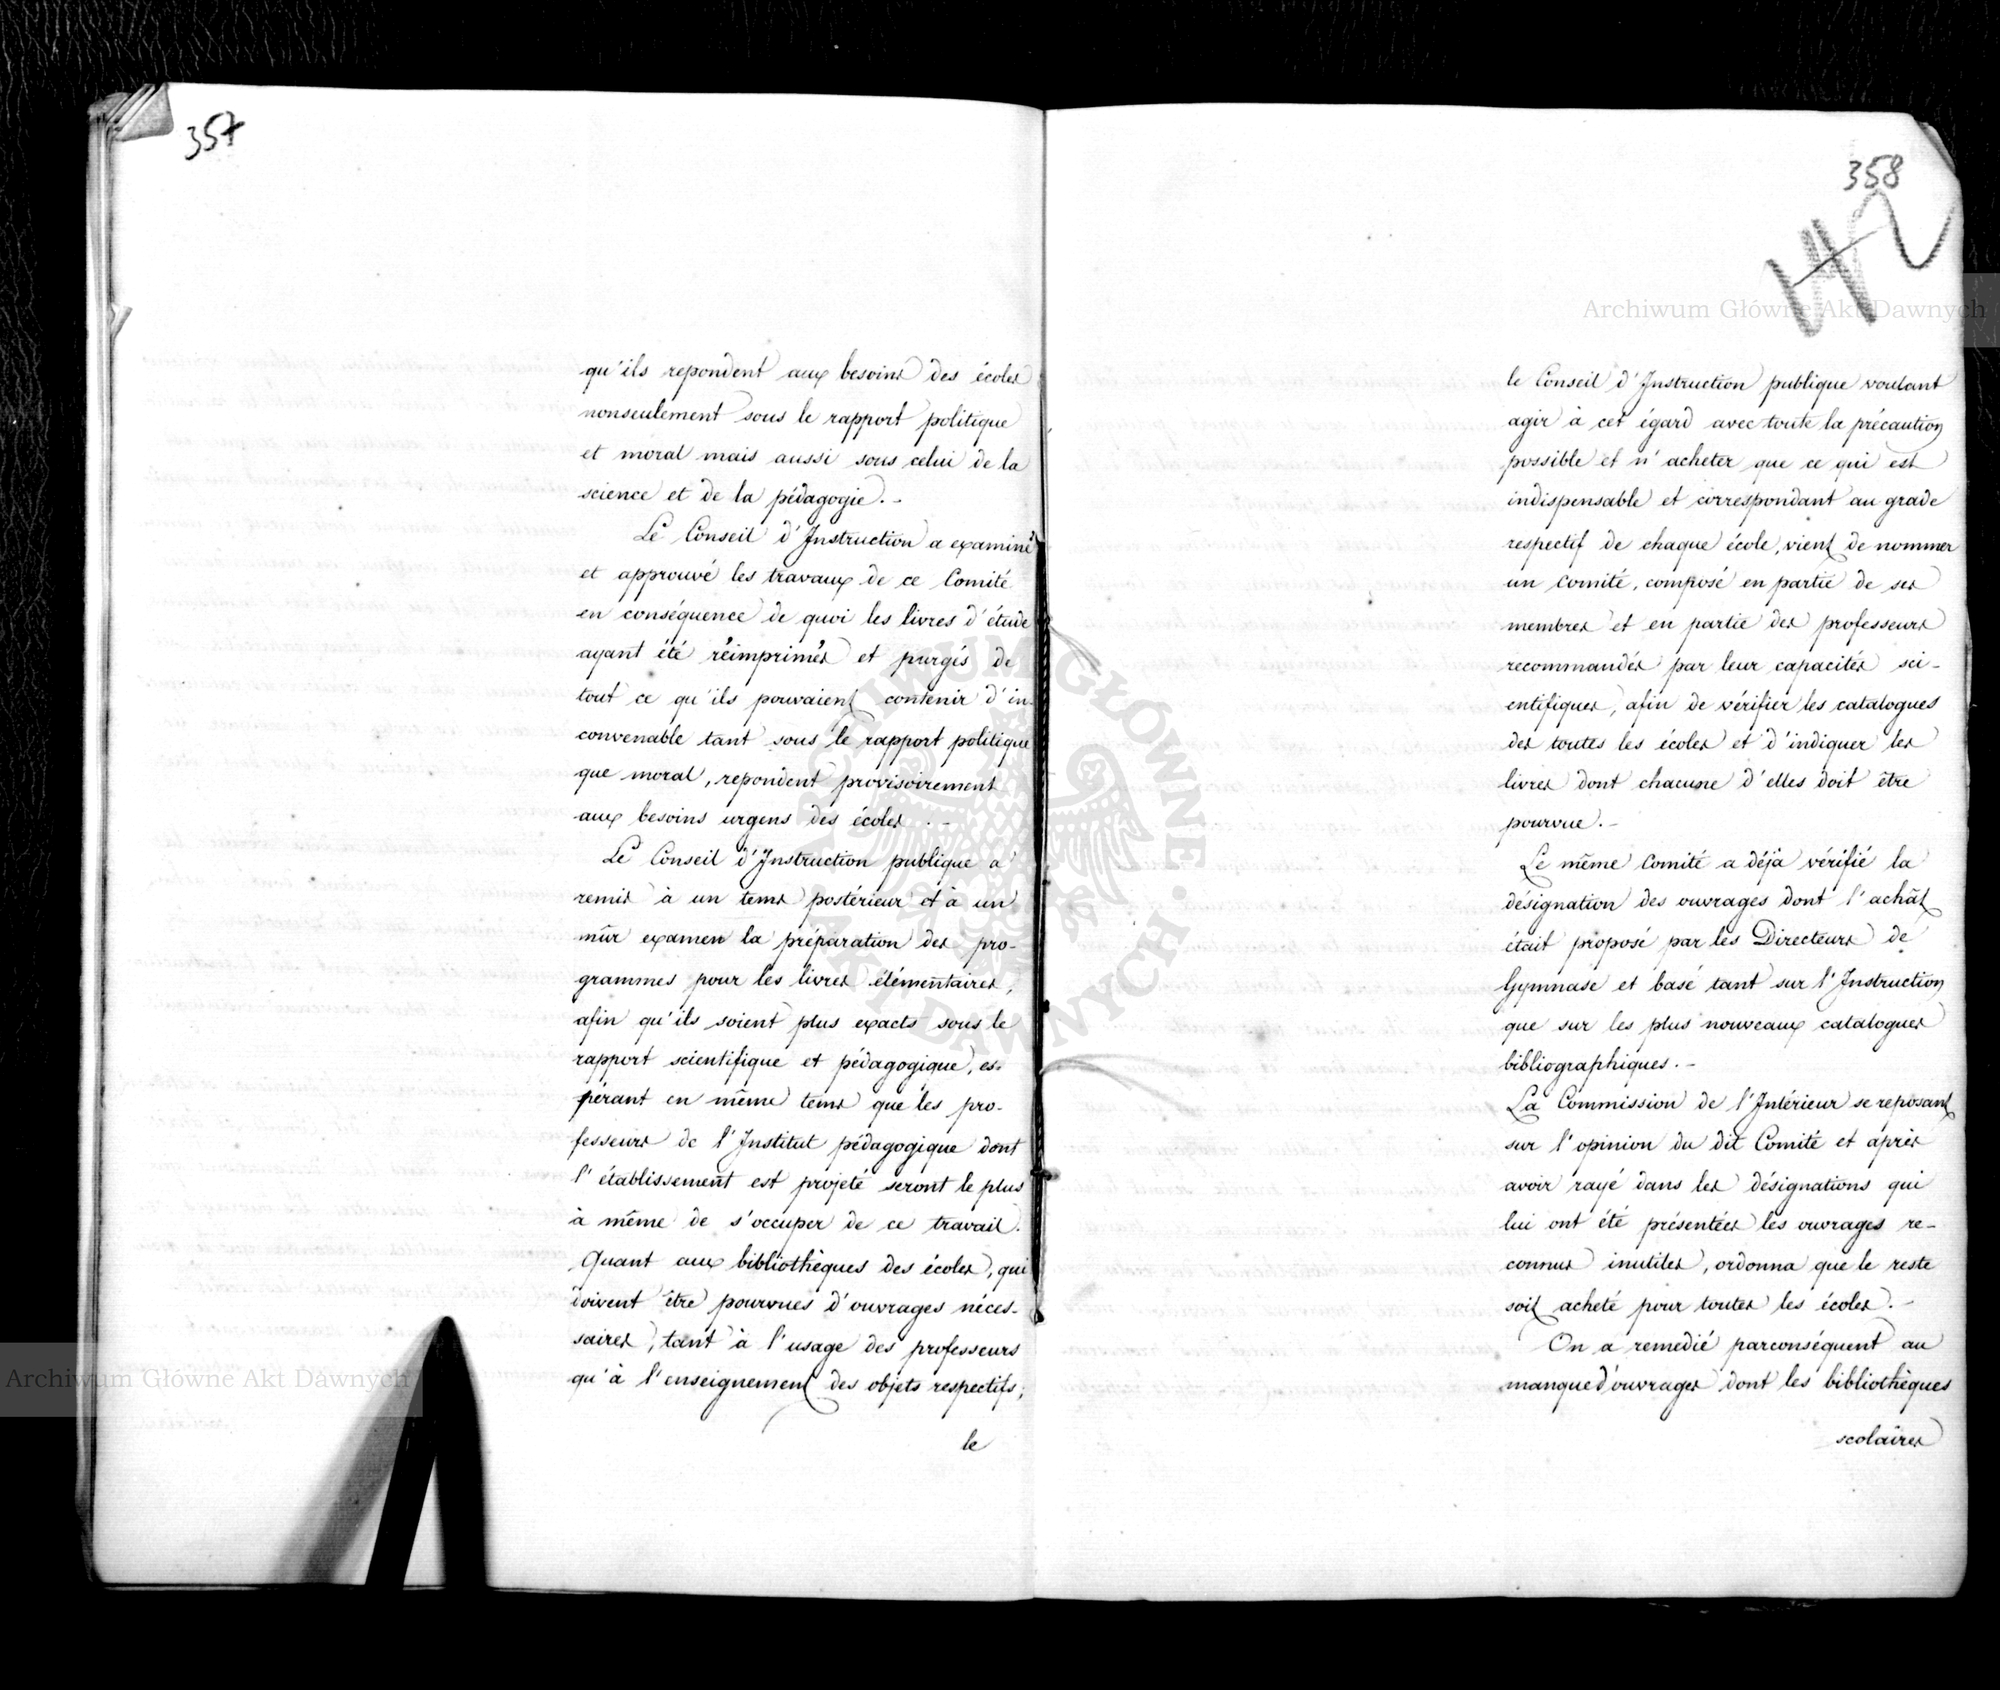 357
qu'ils repondent aux besoins des écoles
nonseulement sous le rapport politique
et moral mais aussi sous celui de la
science et de la pédagogie.-
Le Conseil d'Instruction a examiné
et approuvé les travaux de ce Comité
en conséquence de quoi les livres d'étude
ayant été réimprimés et purgés de
tout ce qu'ils pouvaient contenir d'in-
convenable tant sous le rapport politique
que moral, repondent provisoirement
aux besoins urgens des écoles.-
Le Conseil d'Instruction publique a
remis à un tems postérieur et à un
mûr examen la préparation des pro-
grammes pour les livres élémentaires,
afin qu'ils soient plus exacts sous le
rapport scientifique et pédagogique, es-
pérant en même tems que les pro-
fesseurs de l'Institut pédagogique dont
l'établissement est projeté seront le plus
à même de s'occuper de ce travail.
Quant aux bibliothèques des écoles, qui
doivent être pourvues d'ouvrages néces-
saires, tant à l'usage des professeurs
qu'à l'enseignement des objets respectifs,
le
358
le Conseil d'Instruction publique voulant
agir à cet égard avec toute la précaution
possible et n'acheter que ce qui est
indispensable et correspondant au grade
respectif de chaque école, vient de nommer
un comité, composé en partie de ses
membres et en partie des professeurs
recommandés par leur capacités sci-
entifiques, afin de vérifier les catalogues
des toutes les écoles et d'indiquer les
livres dont chacune d'elles doit être
pourvue.-
Le même Comité a déjà vérifié la
désignation des ouvrages dont l'achât
était proposé par les Directeurs de
Gymnase et basé tant sur l'Instruction
que sur les plus nouveaux catalogues
bibliographiques.-
La Commission de l'Intérieur se reposant
sur l'opinion du dit Comité et après
avoir rayé dans les désignations qui
lui ont été présentées les ouvrages re-
connus inutiles, ordonna que le reste
soit acheté pour toutes les écoles.-
On a remedié parconséquent au
manque d'ouvrages dont les bibliothèques
scolaires
Archiwum Główne Akt Dawnych
Archiwum Główne Akt Dawnych
ARCHIWUM GŁÓWNE AKT DAWNYCH